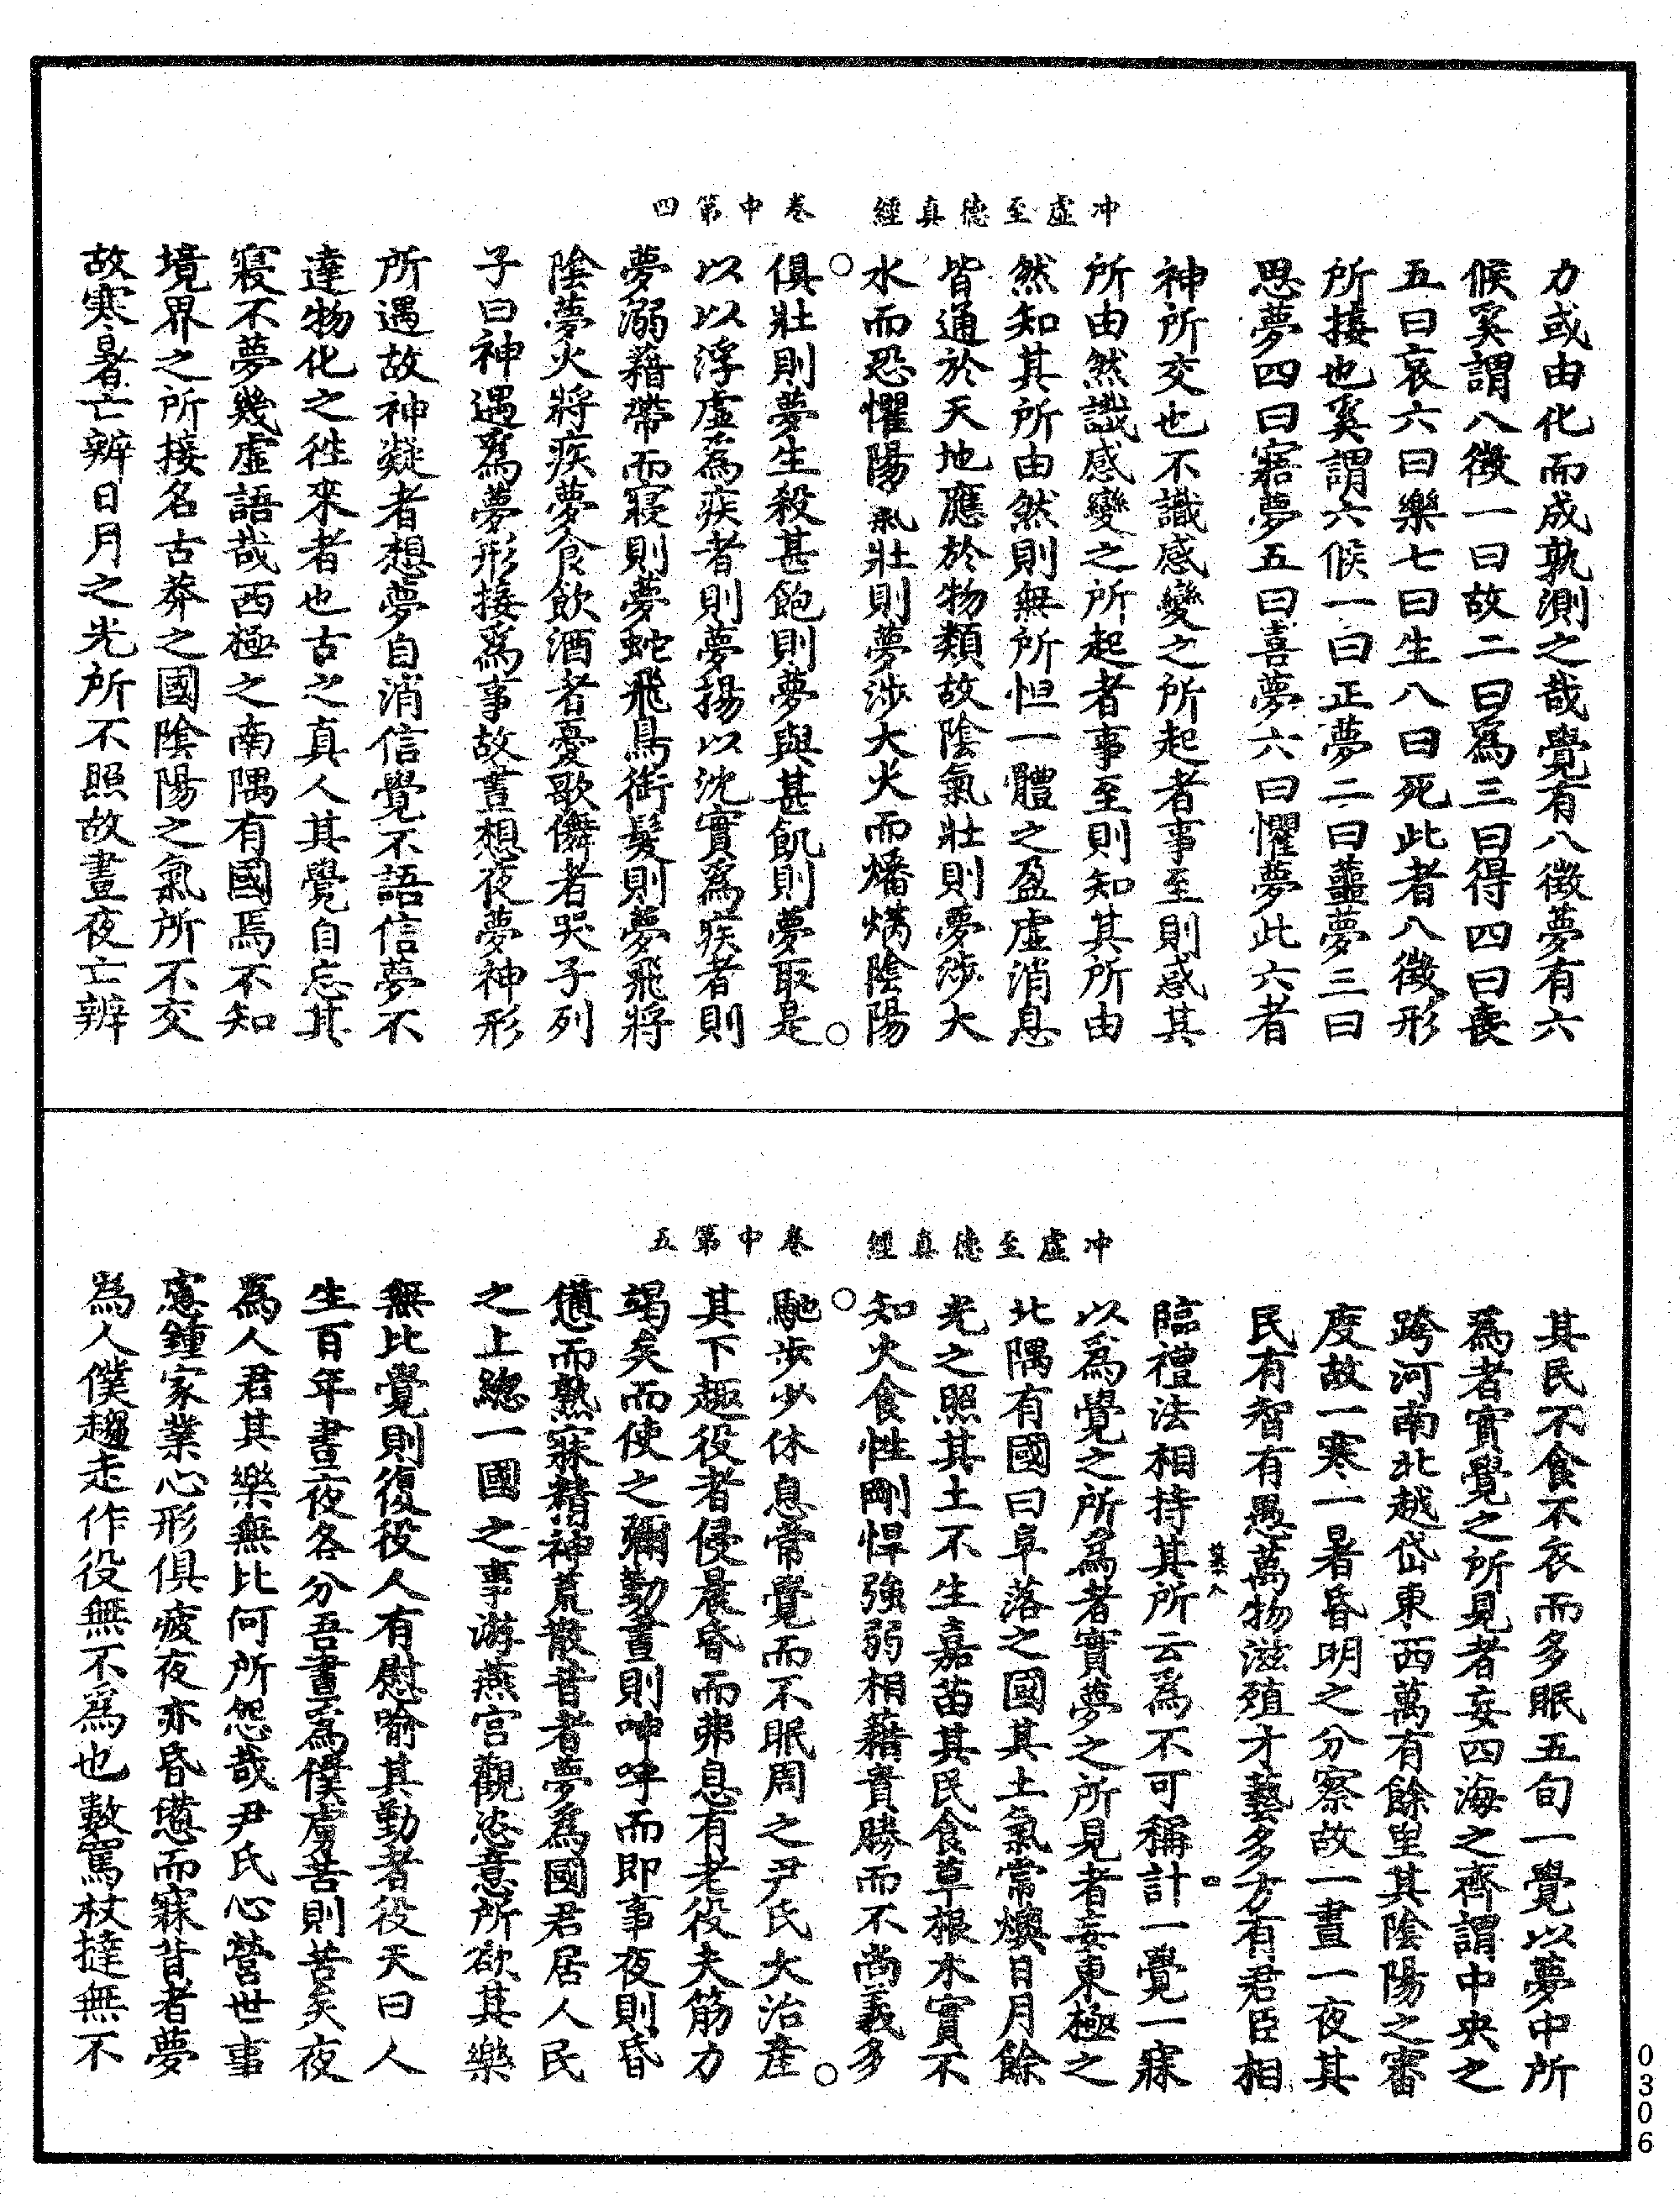 冲虛至德真經　卷中第四
力或由化而成孰測之哉覺有八徵夢有六
候奚謂八徵一曰故二曰爲三曰得四曰喪
五曰哀六曰樂七曰生八曰死此者八徵形
所接也奚謂六候一曰正夢二曰蘁夢三曰
思夢四曰寤夢五曰喜夢六曰懼夢此六者
神所交也不識感變之所起者事至則惑其
所由然識感變之所起者事至則知其所由
然知其所由然則無所怛一體之盈虛消息
皆通於天地應於物類故陰氣壯則夢涉大
水而恐懼陽氣壯則夢涉大火而燔焫陰陽
俱壯則夢生殺甚飽則夢與甚飢則夢取是
以以浮虛爲疾者則夢揚以沈實爲疾者則
夢溺藉帶而寢則夢蛇飛鳥銜髮則夢飛將
陰夢火將疾夢食飲酒者憂歌儛者哭子列
子曰神遇爲夢形接爲事故晝想夜夢神形
所遇故神凝者想夢自消信覺不語信夢不
達物化之徃來者也古之真人其覺自忘其
寢不夢幾虛語哉西極之南隅有國焉不知
境界之所接名古莽之國陰陽之氣所不交
故寒暑亡辨日月之光所不照故晝夜亡辨
冲虛至德真經　卷中第五
其民不食不衣而多眠五旬一覺以夢中所
爲者實覺之所見者妄四海之齊謂中央之
跨河南北越岱東西萬有餘里其陰陽之審
度故一寒一暑昏明之分察故一晝一夜其
民有智有愚萬物滋殖才藝多方有君臣相
臨禮法相持其所云爲不可稱計一覺一寐
四
以爲覺之所爲者實夢之所見者妄東極之
北隅有國曰阜落之國其土氣常燠日月餘
光之照其土不生嘉苗其民食草根木實不
知火食性剛悍強弱相藉貴勝而不尚義多
馳步少休息常覺而不眠周之尹氏大治產
其下趣役者侵晨昏而弗息有老役夫筋力
竭矣而使之彌勤晝則呻呼而即事夜則昏
憊而熟寐精神荒散昔者夢爲國君居人民
之上緫一國之事游燕宮觀恣意所欲其樂
無比覺則復役人有慰喻其勤者役夫曰人
生百年晝夜各分吾晝爲僕虜苦則苦矣夜
爲人君其樂無比何所怨哉尹氏心營世事
慮鍾家業心形俱疲夜亦昏憊而寐昔者夢
爲人僕趨走作役無不爲也數罵杖撻無不
0306